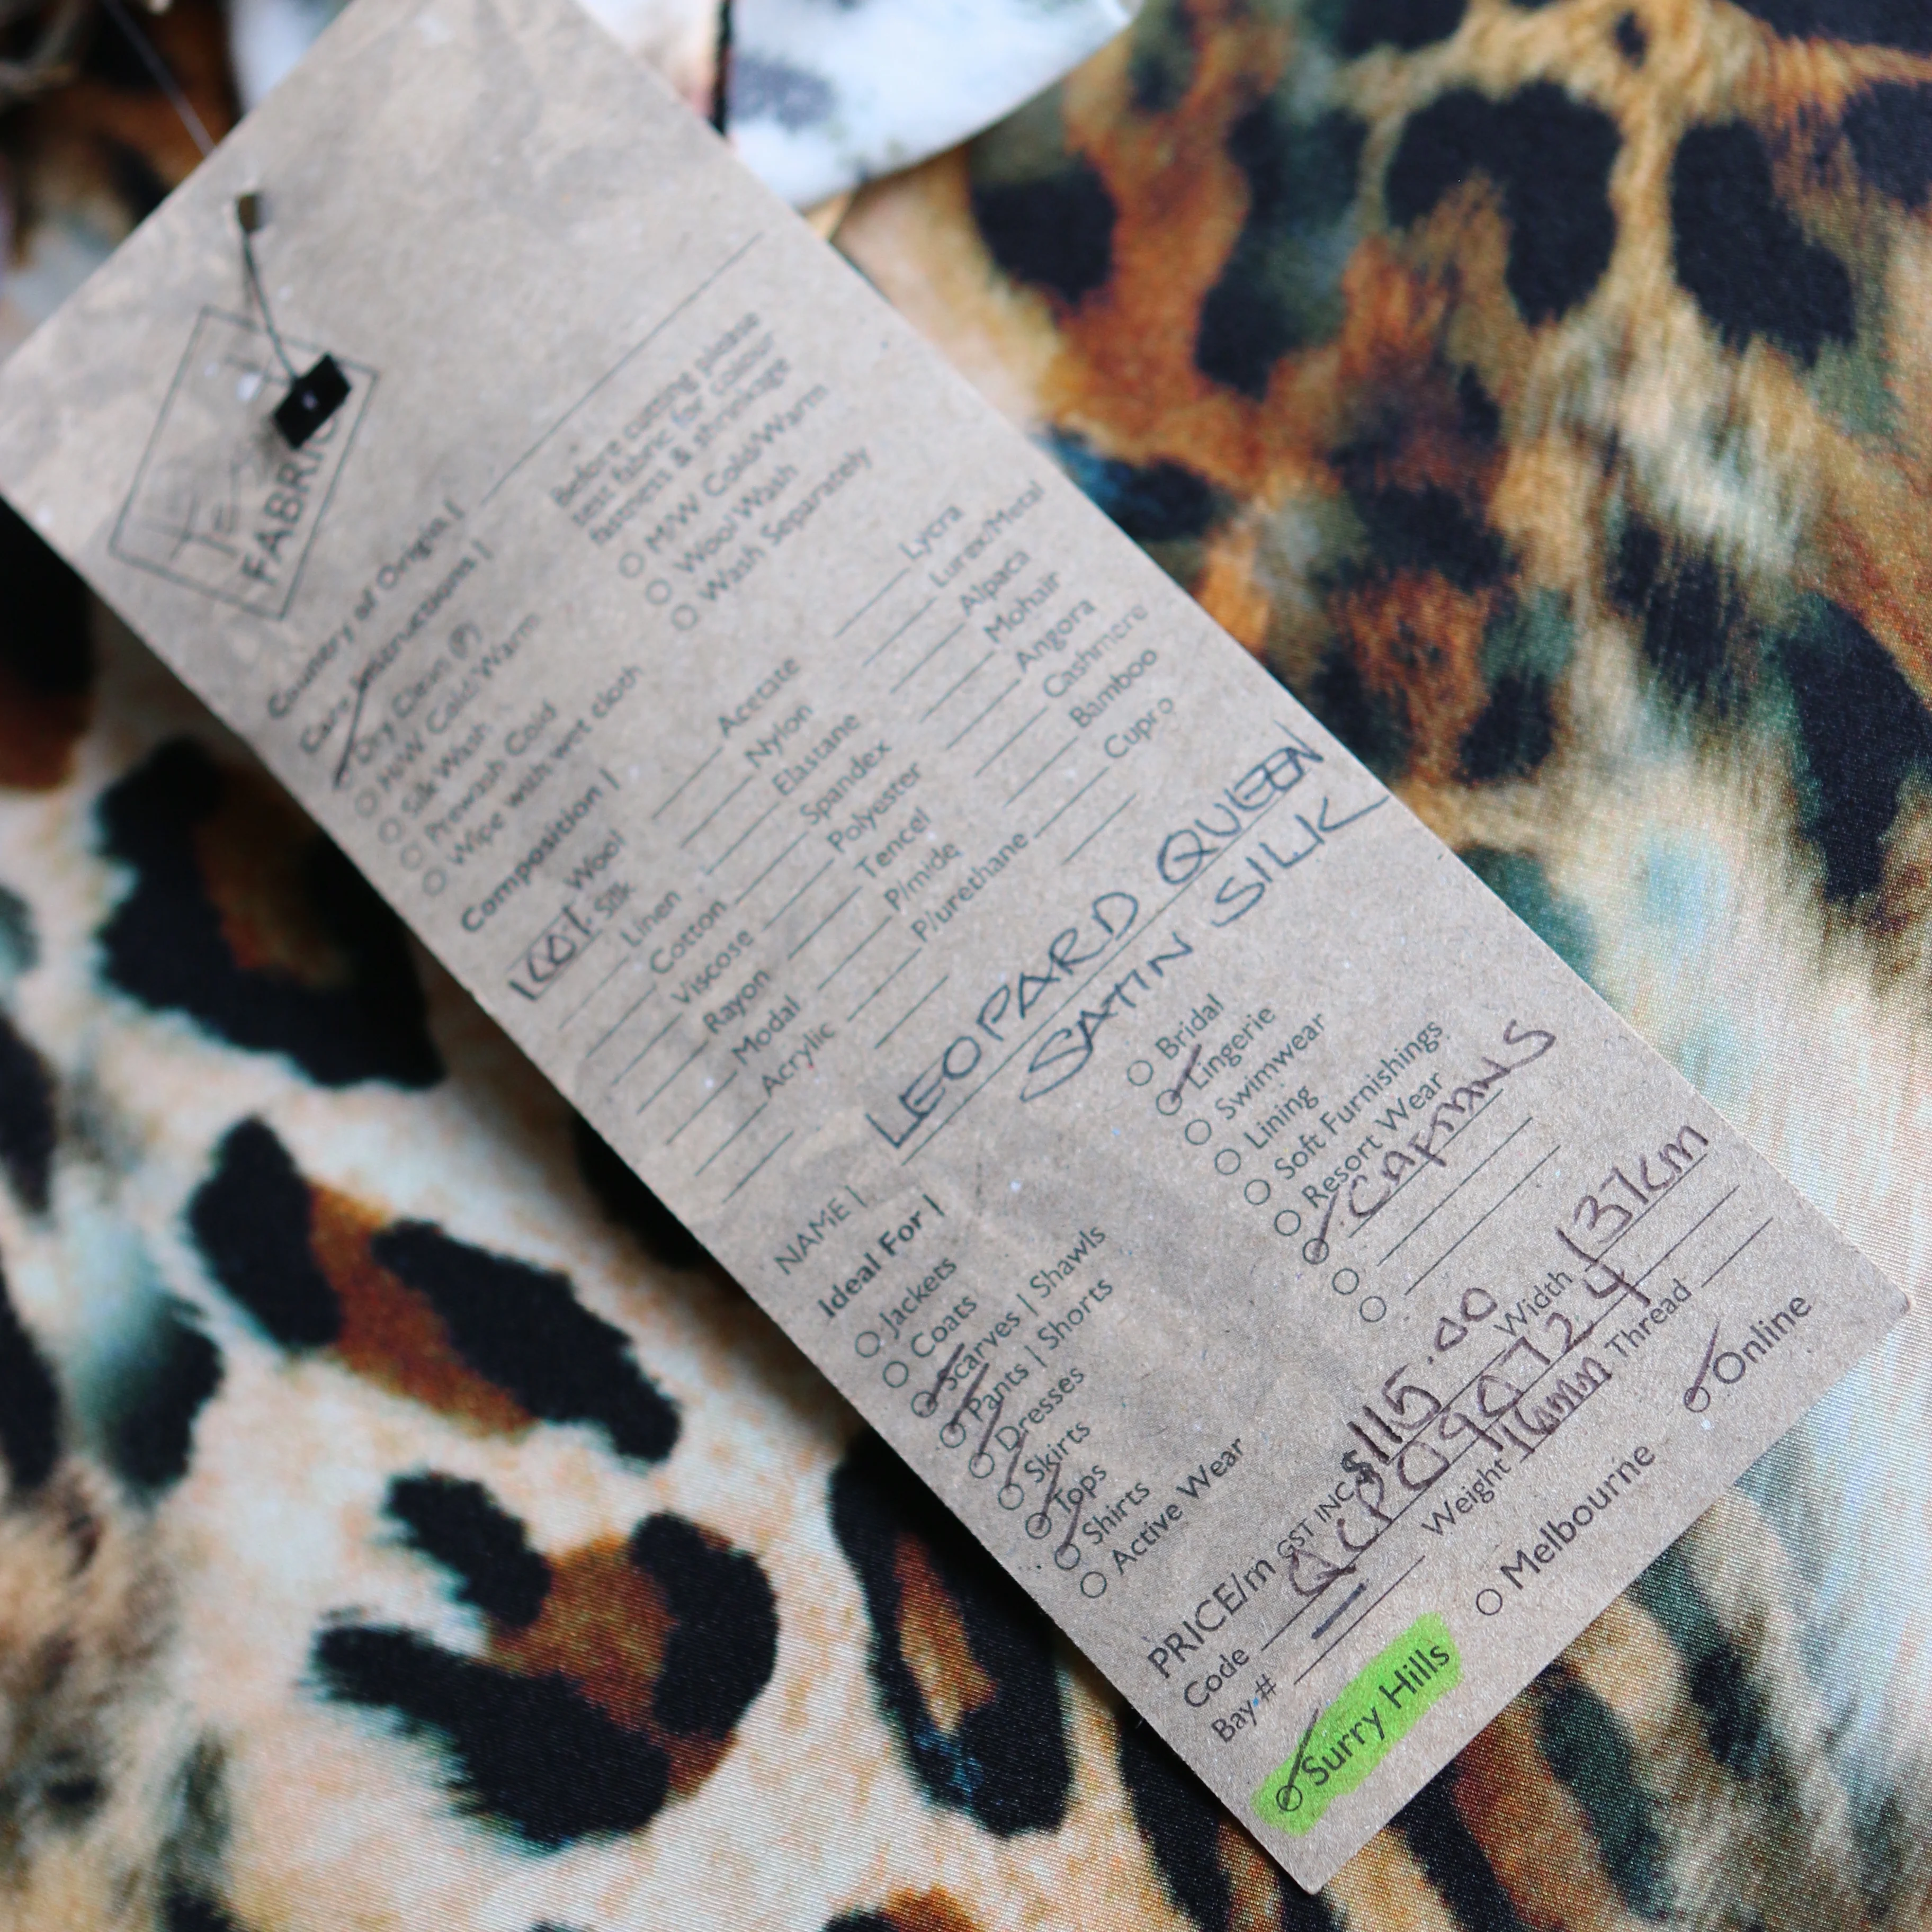 FABRIC
Country of Origin |
Care Instructions |
Dry Clean (P)
H/W Cold/Warm
Silk Wash
Prewash Cold
Wipe with wet cloth
Before cutting please
test fabric for colour
fastness & shrinkage
M/W Cold/Warm
Wool Wash
Wash Separately
Composition |
Wool
100% Silk
Linen
Cotton
Viscose
Rayon
Modal
Acrylic
Acetate
Nylon
Elastane
Spandex
Polyester
Tencel
P/mide
P/urethane
Lycra
Lurex/Metal
Alpaca
Mohair
Angora
Cashmere
Bamboo
Cupro
NAME | LEOPARD QUEEN
SATIN SILK
Ideal For |
Jackets
Coats
Scarves | Shawls
Pants | Shorts
Dresses
Skirts
Tops
Shirts
Active Wear
Bridal
Lingerie
Swimwear
Lining
Soft Furnishings
Resort Wear
CAFTANS
PRICE/m GST INC $115.00 Width 137cm
Code
Bay # — Weight 16mm Thread
Surry Hills
Melbourne
Online